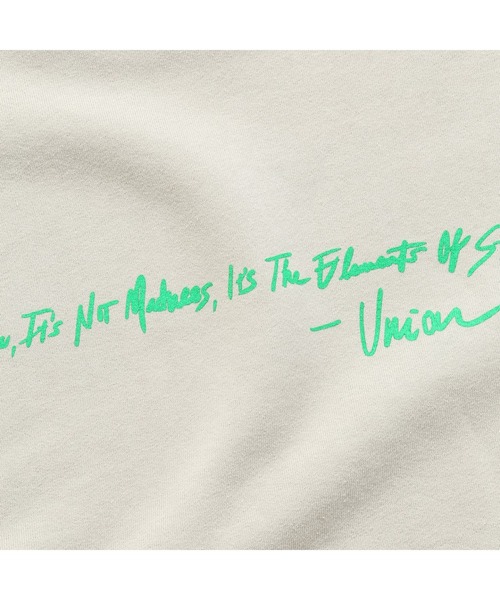 It's Not Madness, It's The Elements Of
- Union